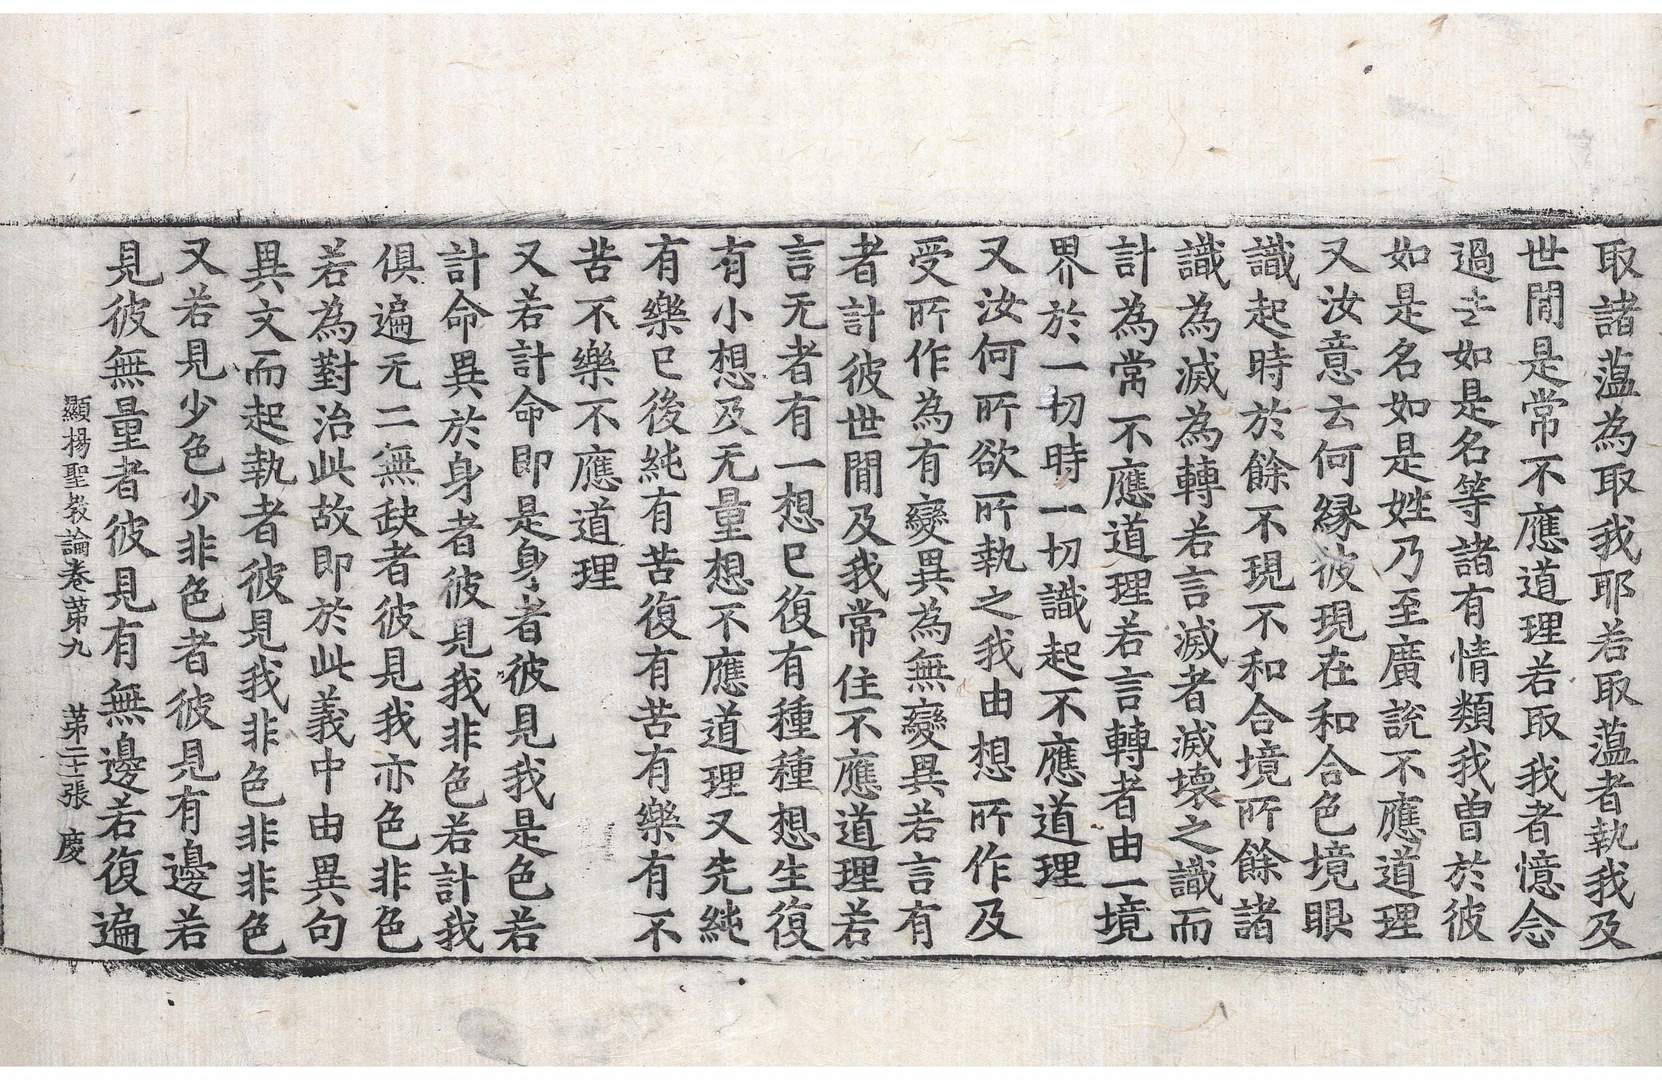 取諸薀為取我耶若取薀者執我及
世間是常不應道理若取我者憶念
過去如是名等諸有情類我曾於彼
如是名如是姓乃至廣說不應道理
又汝意云何縁彼現在和合色境眼
識起時於餘不現不和合境所餘諸
識為滅為轉若言滅者滅壞之識而
計為常不應道理若言轉者由一境
界於一切時一切識起不應道理
又汝何所欲所執之我由想所作及
受所作為有變異為無變異若言有
者計彼世間及我常住不應道理若
言无者有一想已復有種種想生復
有小想及无量想不應道理又先純
有樂已後純有苦復有苦有樂有不
苦不樂不應道理
又若計命即是身者彼見我是色若
計命異於身者彼見我非色若計我
俱遍无二無缺者彼見我亦色非色
若為對治此故即於此義中由異句
異文而起執者彼見我非色非非色
又若見少色少非色者彼見有邊若
見彼無量者彼見有無邊若復遍
顯揚聖教論卷第九 第二十張 慶